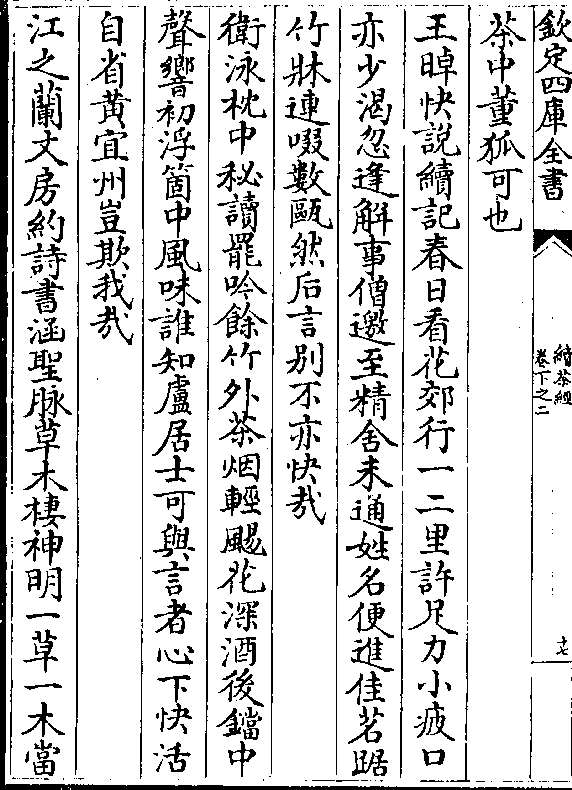 欽定四庫全書
續茶經
卷下之二
十七
茶中董狐可也
王晫快說續記春日看花郊行一二里許足力小疲口
亦少渴忽逢解事僧邀至精舍未通姓名便進佳茗踞
竹牀連啜數甌然后言别不亦快哉
衛泳枕中秘讀罷吟餘竹外茶烟輕颺花深酒後鐺中
聲響初浮箇中風味誰知盧居士可與言者心下快活
自省黄宜州豈欺我哉
江之蘭文房約詩書涵聖脉草木棲神明一草一木當